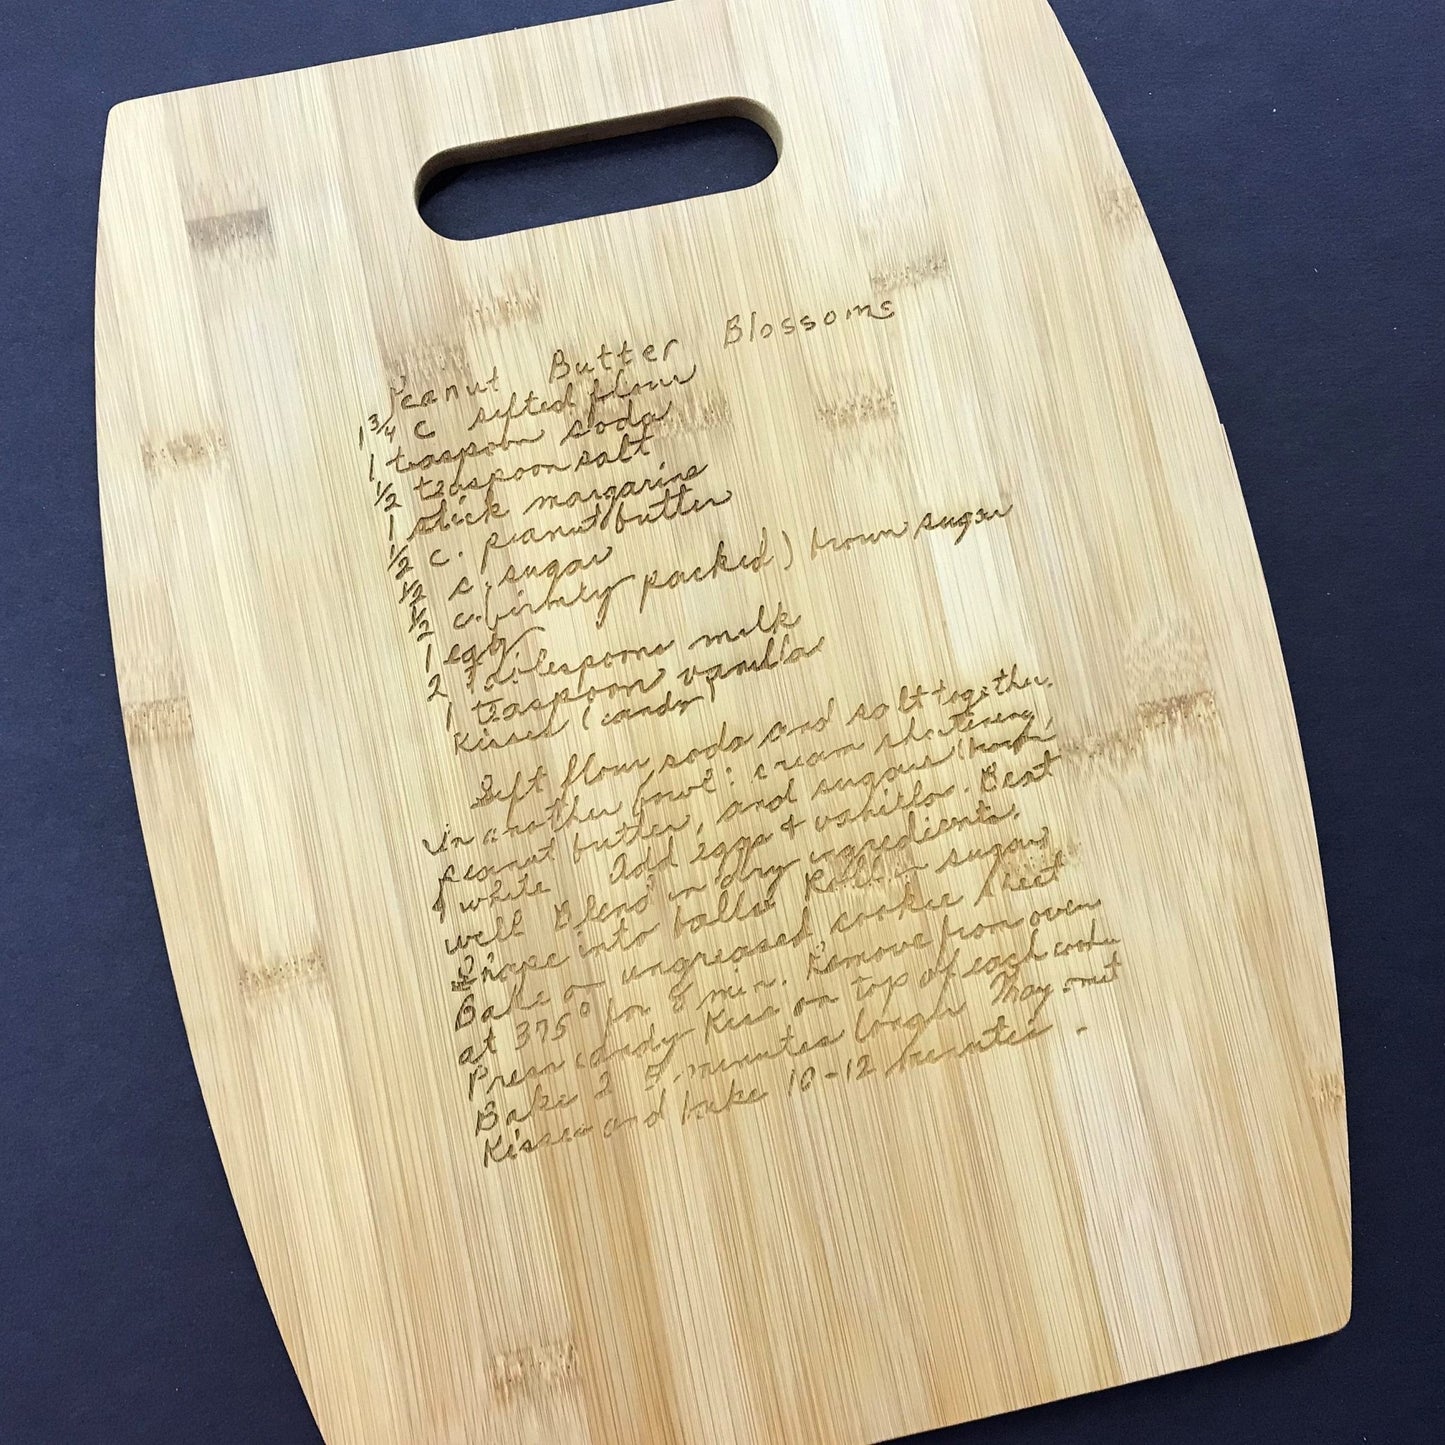 Peanut Butter Blossoms
1 3/4 C sifted flour
1 teaspoon soda
1/2 teaspoon salt
1 stick margarine
1/2 c. peanut butter
1/2 c. sugar
1/2 c. (firmly packed) brown sugar
1 egg
2 Tablespoons milk
1 teaspoon vanilla
Kisses (candy)
Sift flour, soda and salt together.
In another bowl: cream shortening,
peanut butter, and sugars (brown
& white Add eggs & vanilla. Beat
well Blend in dry ingredients.
Shape into balls Roll in sugar
Bake on ungreased cookie sheet
at 375° for 8 min. Remove from oven
Press candy Kiss on top of each cookie
Bake 2 5 minutes longer May omit
Kisses and bake 10-12 minutes.